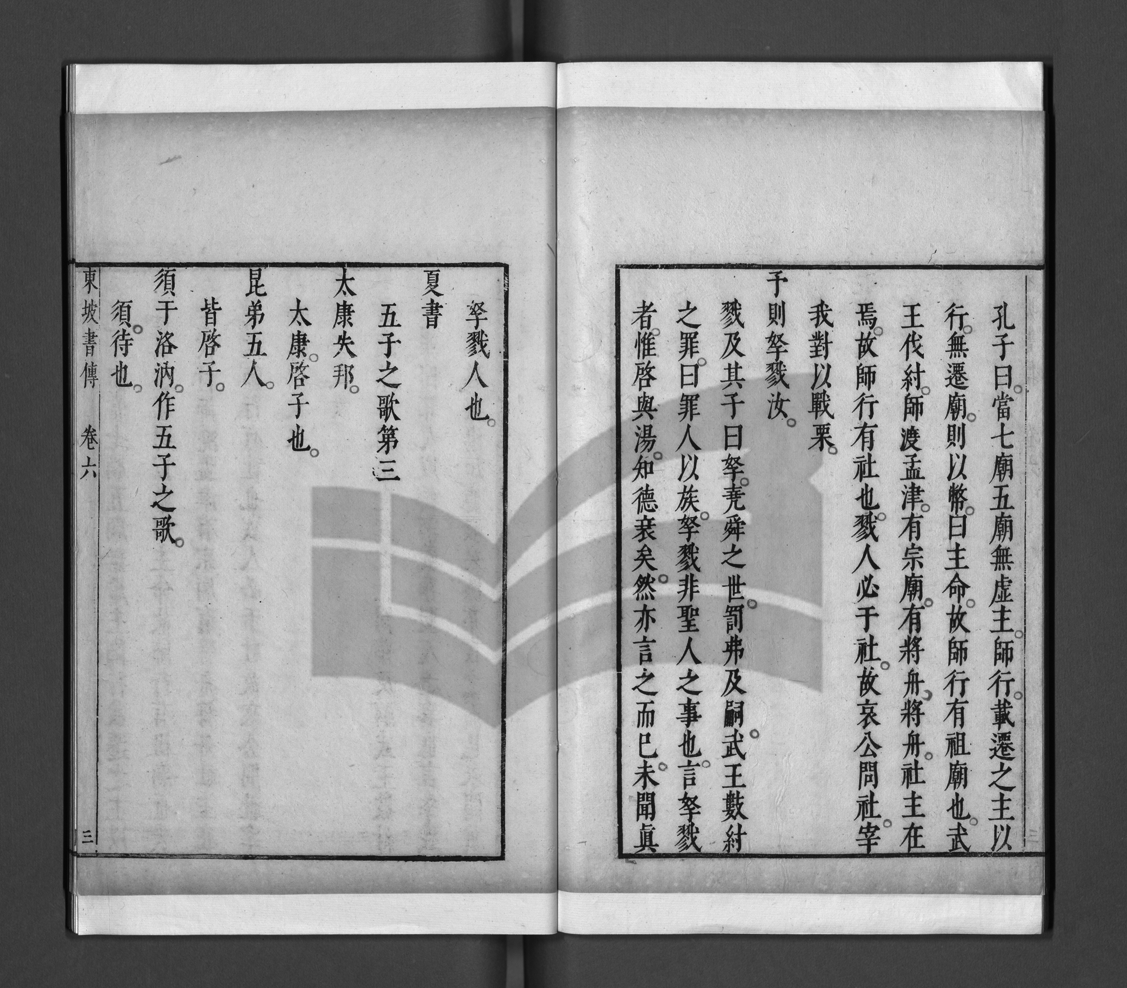 孔子曰。當七廟五廟無虛主。師行。載遷之主以
行。無遷廟。則以幣。曰主命。故師行有祖廟也。武
王伐紂。師渡孟津。有宗廟。有將舟。將舟。社主在
焉。故師行有社也。戮人必于社。故哀公問社。宰
我對以戰栗。
予則孥戮汝。
戮及其子曰孥。堯舜之世。罰弗及嗣。武王數紂
之罪。曰罪人以族。孥戮非聖人之事也。言孥戮
者。惟啓與湯。知德衰矣。然亦言之而已。未聞眞
孥戮人也。
夏書
五子之歌第三
太康失邦。
太康。啓子也。
昆弟五人。
皆啓子。
須于洛汭。作五子之歌。
須。待也。
東坡書傳 卷六 三